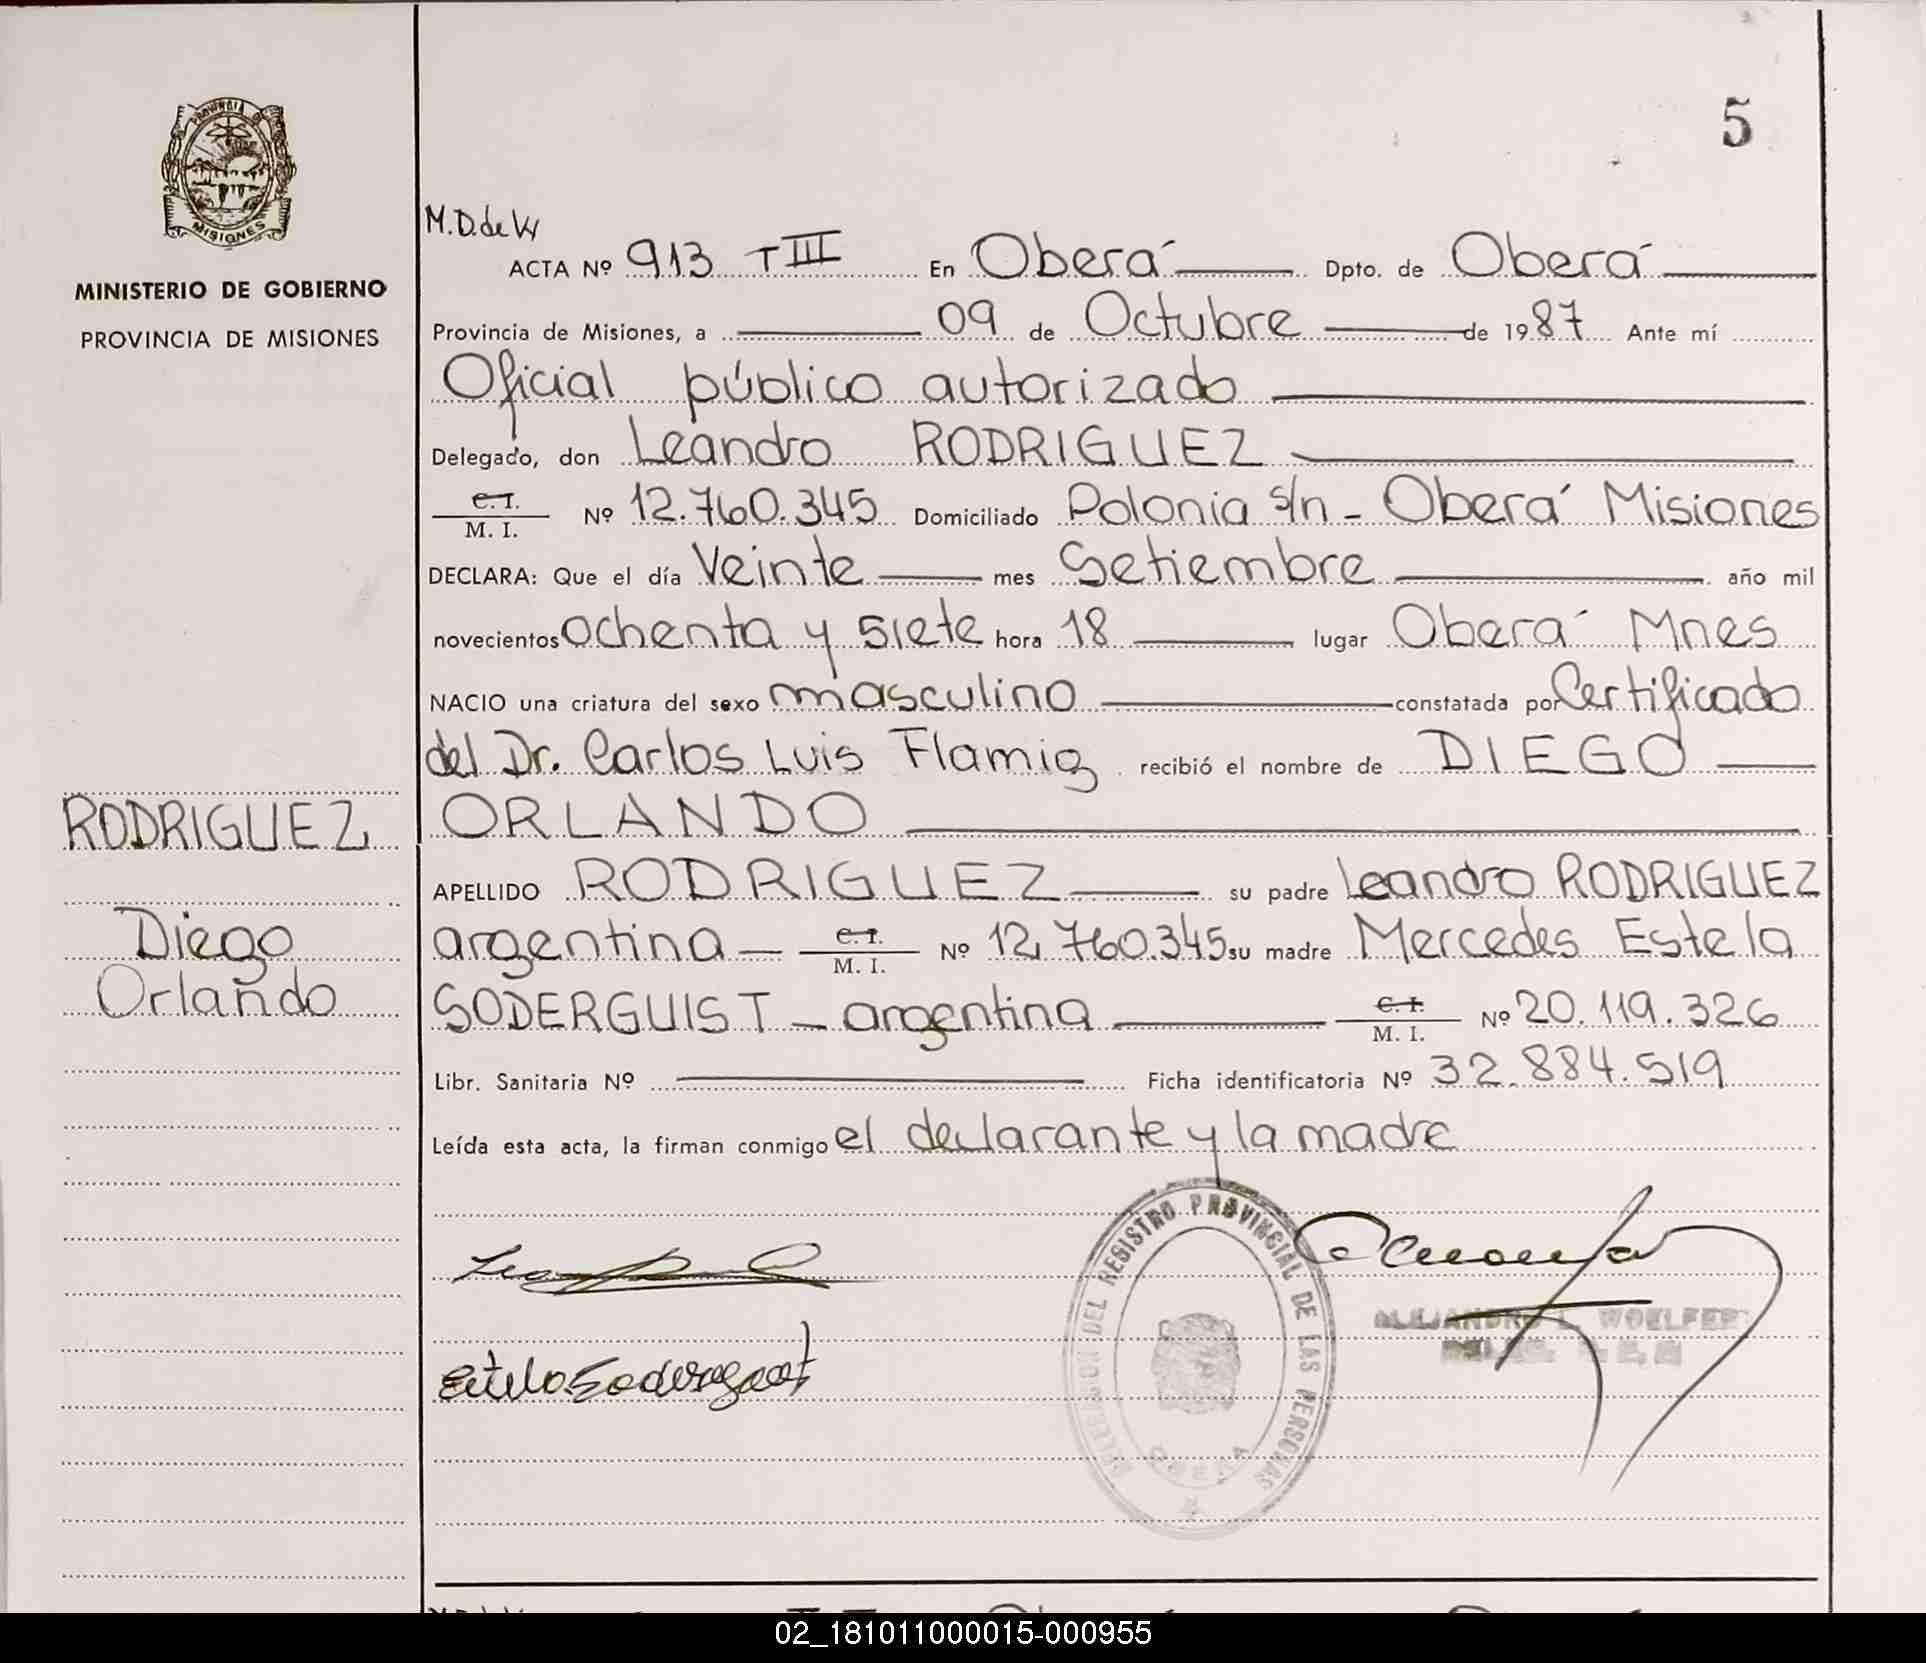 PROVINCIA DE
MISIONES
MINISTERIO DE GOBIERNO
PROVINCIA DE MISIONES
RODRIGUEZ
Diego
Orlando
5
M.D.de W
ACTA Nº 913 T III En Oberá Dpto. de Oberá
Provincia de Misiones, a 09 de Octubre de 1987 Ante mí
Oficial público autorizado
Delegado, don Leandro RODRIGUEZ
C.I.
M. I. Nº 12.760.345 Domiciliado Polonia s/n - Oberá Misiones
DECLARA: Que el día Veinte mes Setiembre año mil
novecientos ochenta y siete hora 18 lugar Oberá Mnes
NACIO una criatura del sexo masculino constatada por Certificado
del Dr. Carlos Luis Flamig recibió el nombre de DIEGO
ORLANDO
APELLIDO RODRIGUEZ su padre Leandro RODRIGUEZ
argentina C.I. M. I. Nº 12.760.345 su madre Mercedes Estela
SODERGUIST - argentina C.I. M. I. Nº 20.119.326
Libr. Sanitaria Nº Ficha identificatoria Nº 32.884.519
Leída esta acta, la firman conmigo el declarante y la madre
DIRECCION DEL REGISTRO PROVINCIAL DE LAS PERSONAS
OBERA
ALEJANDRO L. WOELFER
02_181011000015-000955